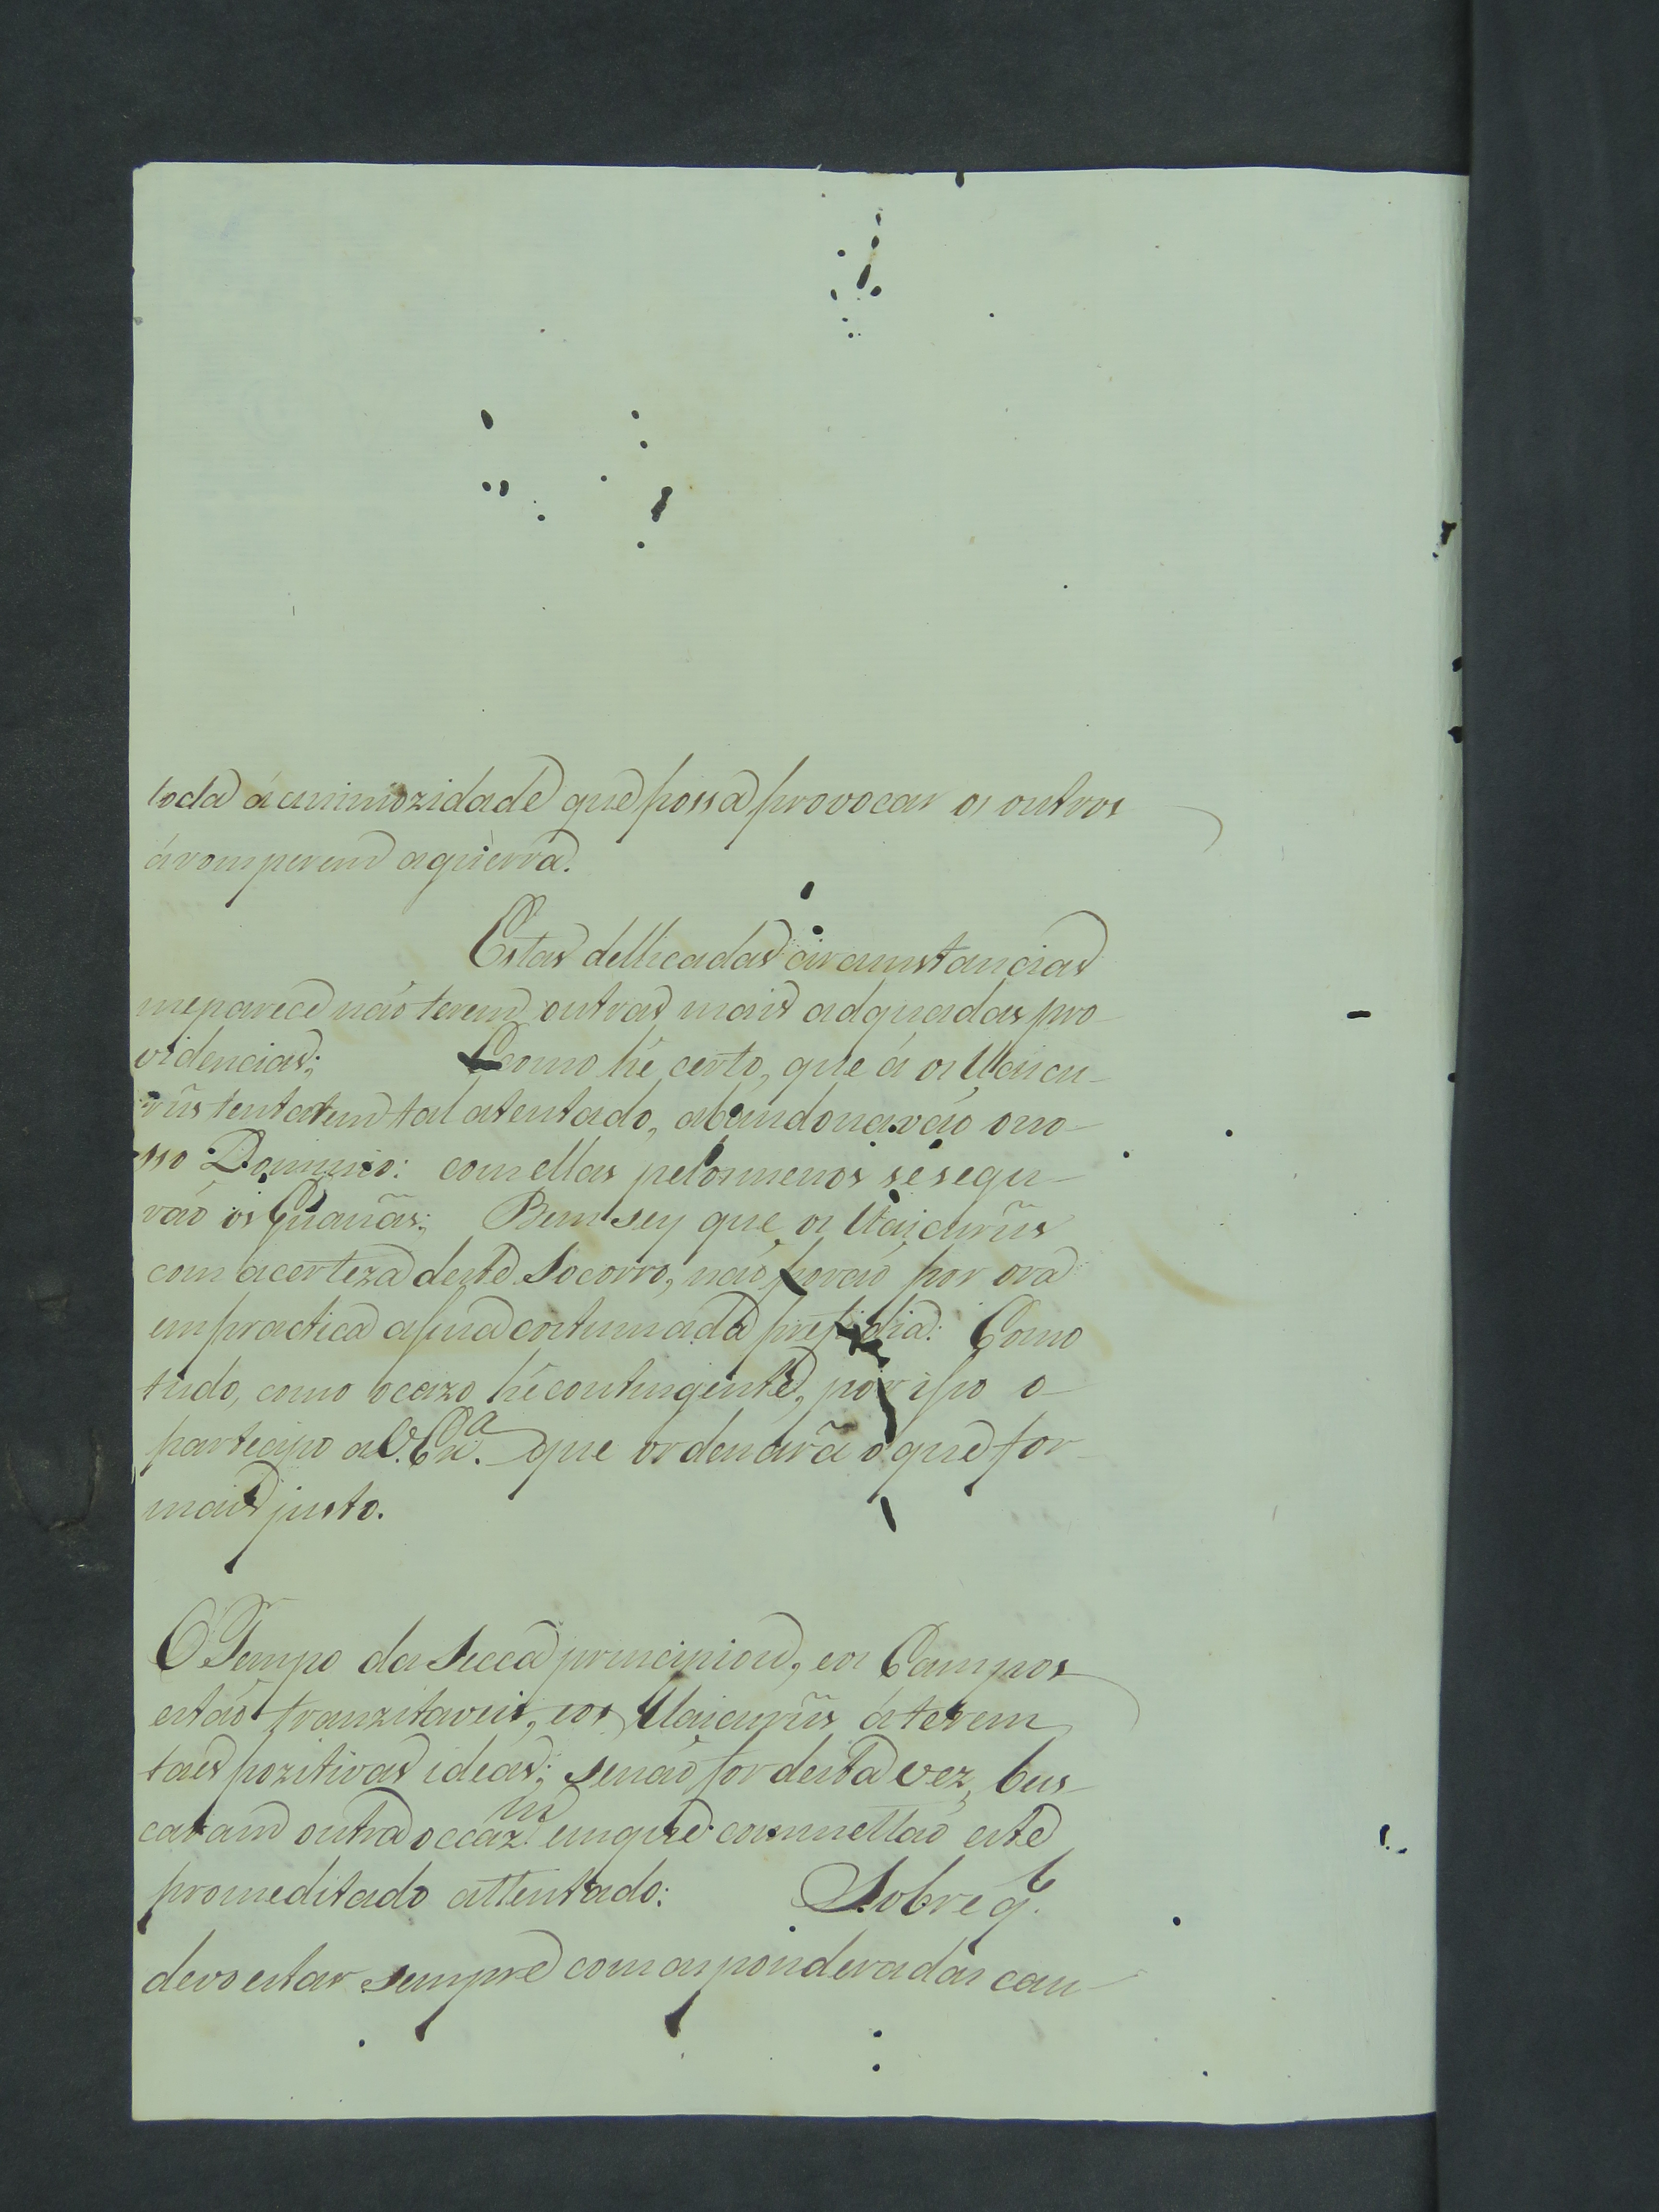 toda á animozidade que possa provocar os outros
á romperem a guerra.
Estas dellicadas circumstancias
me parece não terem outras mais adquadas pro-
videncias; E como hé certo, que á os Uaicu-
rûs tentarem tal atentado, abandonarão o no-
sso Dominio: com ellas pelo menos se segui-
rão os Guanãs; Bem sey que os Uaicurûs
com a certeza deste Socorro, não porão por ora
em practica a sua costumada prefidia: Com o
tudo, como o cazo hé contingente, por isso o
participo a V. Ex.ª que ordenarã o que for
mais justo.
O Tempo da Secca principiou, e os Campos
estão tranzitaveis, e os Uaicurûs á terem
taes pozitivas ideas; se não for desta vez, bus-
caram outra occaz.m em que commettão este
promeditado attentado: Sobre q.
devo estar sempre com as ponderadas cau-